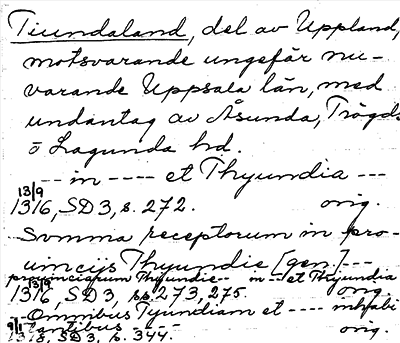 Tiundaland, del av Uppland,
motsvarande ungefär nu-
varande Uppsala län, med
undantag av Åsunda, Trögds
o Lagunda hd.
-- in ---- et Thyundia ---
13/9
1316, SD 3, s. 272. orig.
Summa receptorum in pro-
uincijs Thyundie [gen.] ---
prouinciarum Thyundie -- in -- et Thyundia
13/9
1316, SD 3, ss. 273, 275. orig.
-- Omnibus Tyundiam et ---- inhabi
tantibus - - -
9/1
1318, SD 3, s. 344. orig.